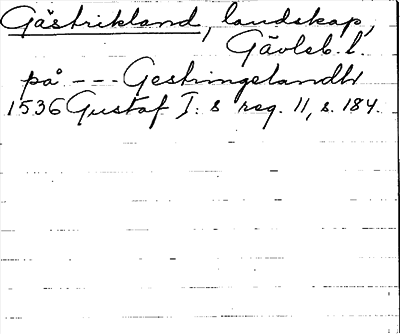 Gästrikland, landskap,
Gävleb. l.
på --- Gestringelandh
1536 Gustaf I:s reg. 11, s. 184.